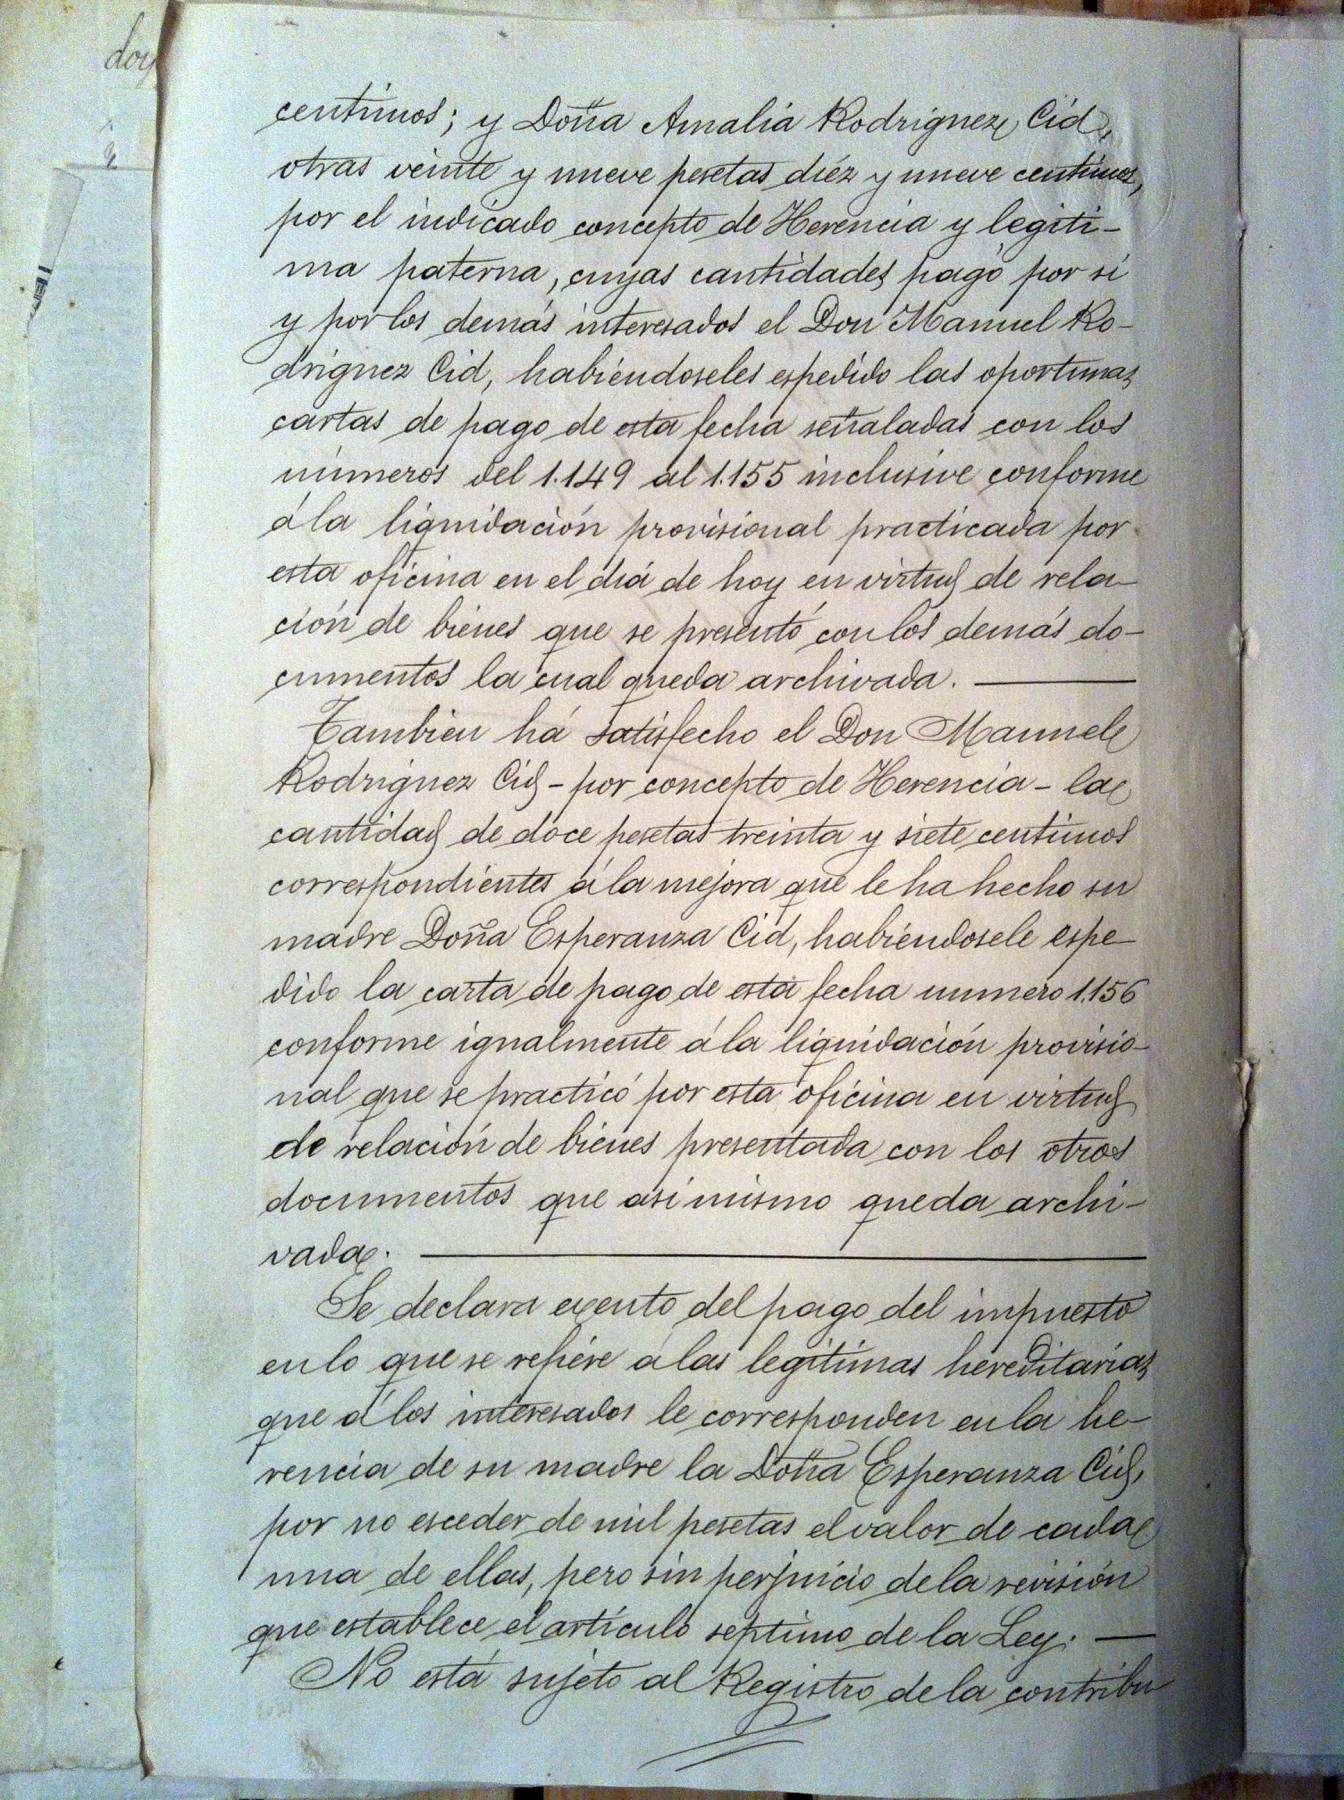 doy
centimos; y Doña Amalia Rodriguez Cid,
otras veinte y nueve pesetas diéz y nueve centimos,
por el indicado concepto de Herencia y legiti-
ma paterna, cuyas cantidades pagó por si
y por los demás interesados el Don Manuel Ro-
driguez Cid, habiéndoseles espedido las oportunas
cartas de pago de esta fecha señaladas con los
números del 1.149 al 1.155 inclusive conforme
á la liquidación provisional practicada por
esta oficina en el diá de hoy en virtud de rela-
ción de biénes que se presentó con los demás do-
cumentos la cual queda archivada.
Tambien há satisfecho el Don Manuel
Rodriguez Cid - por concepto de Herencia - la
cantidad de doce pesetas treinta y siete centimos
correspondientes á la mejora que le ha hecho su
madre Doña Esperanza Cid, habiéndosele espe-
dido la carta de pago de esta fecha numero 1.156
conforme igualmente á la liquidación provisio-
nal que se practicó por esta oficina en virtud
de relación de biénes presentada con los otros
documentos que asi mismo queda archi-
vada.
Se declara exento del pago del impuesto
en lo que se refiére á las legitimas hereditarias
que á los interesados le corresponden en la he-
rencia de su madre la Doña Esperanza Cid,
por no esceder de mil pesetas el valor de cada
una de ellas, pero sin perjuicio de la revisión
que establece el artículo septimo de la Ley.
No está sujeto al Registro de la contribu